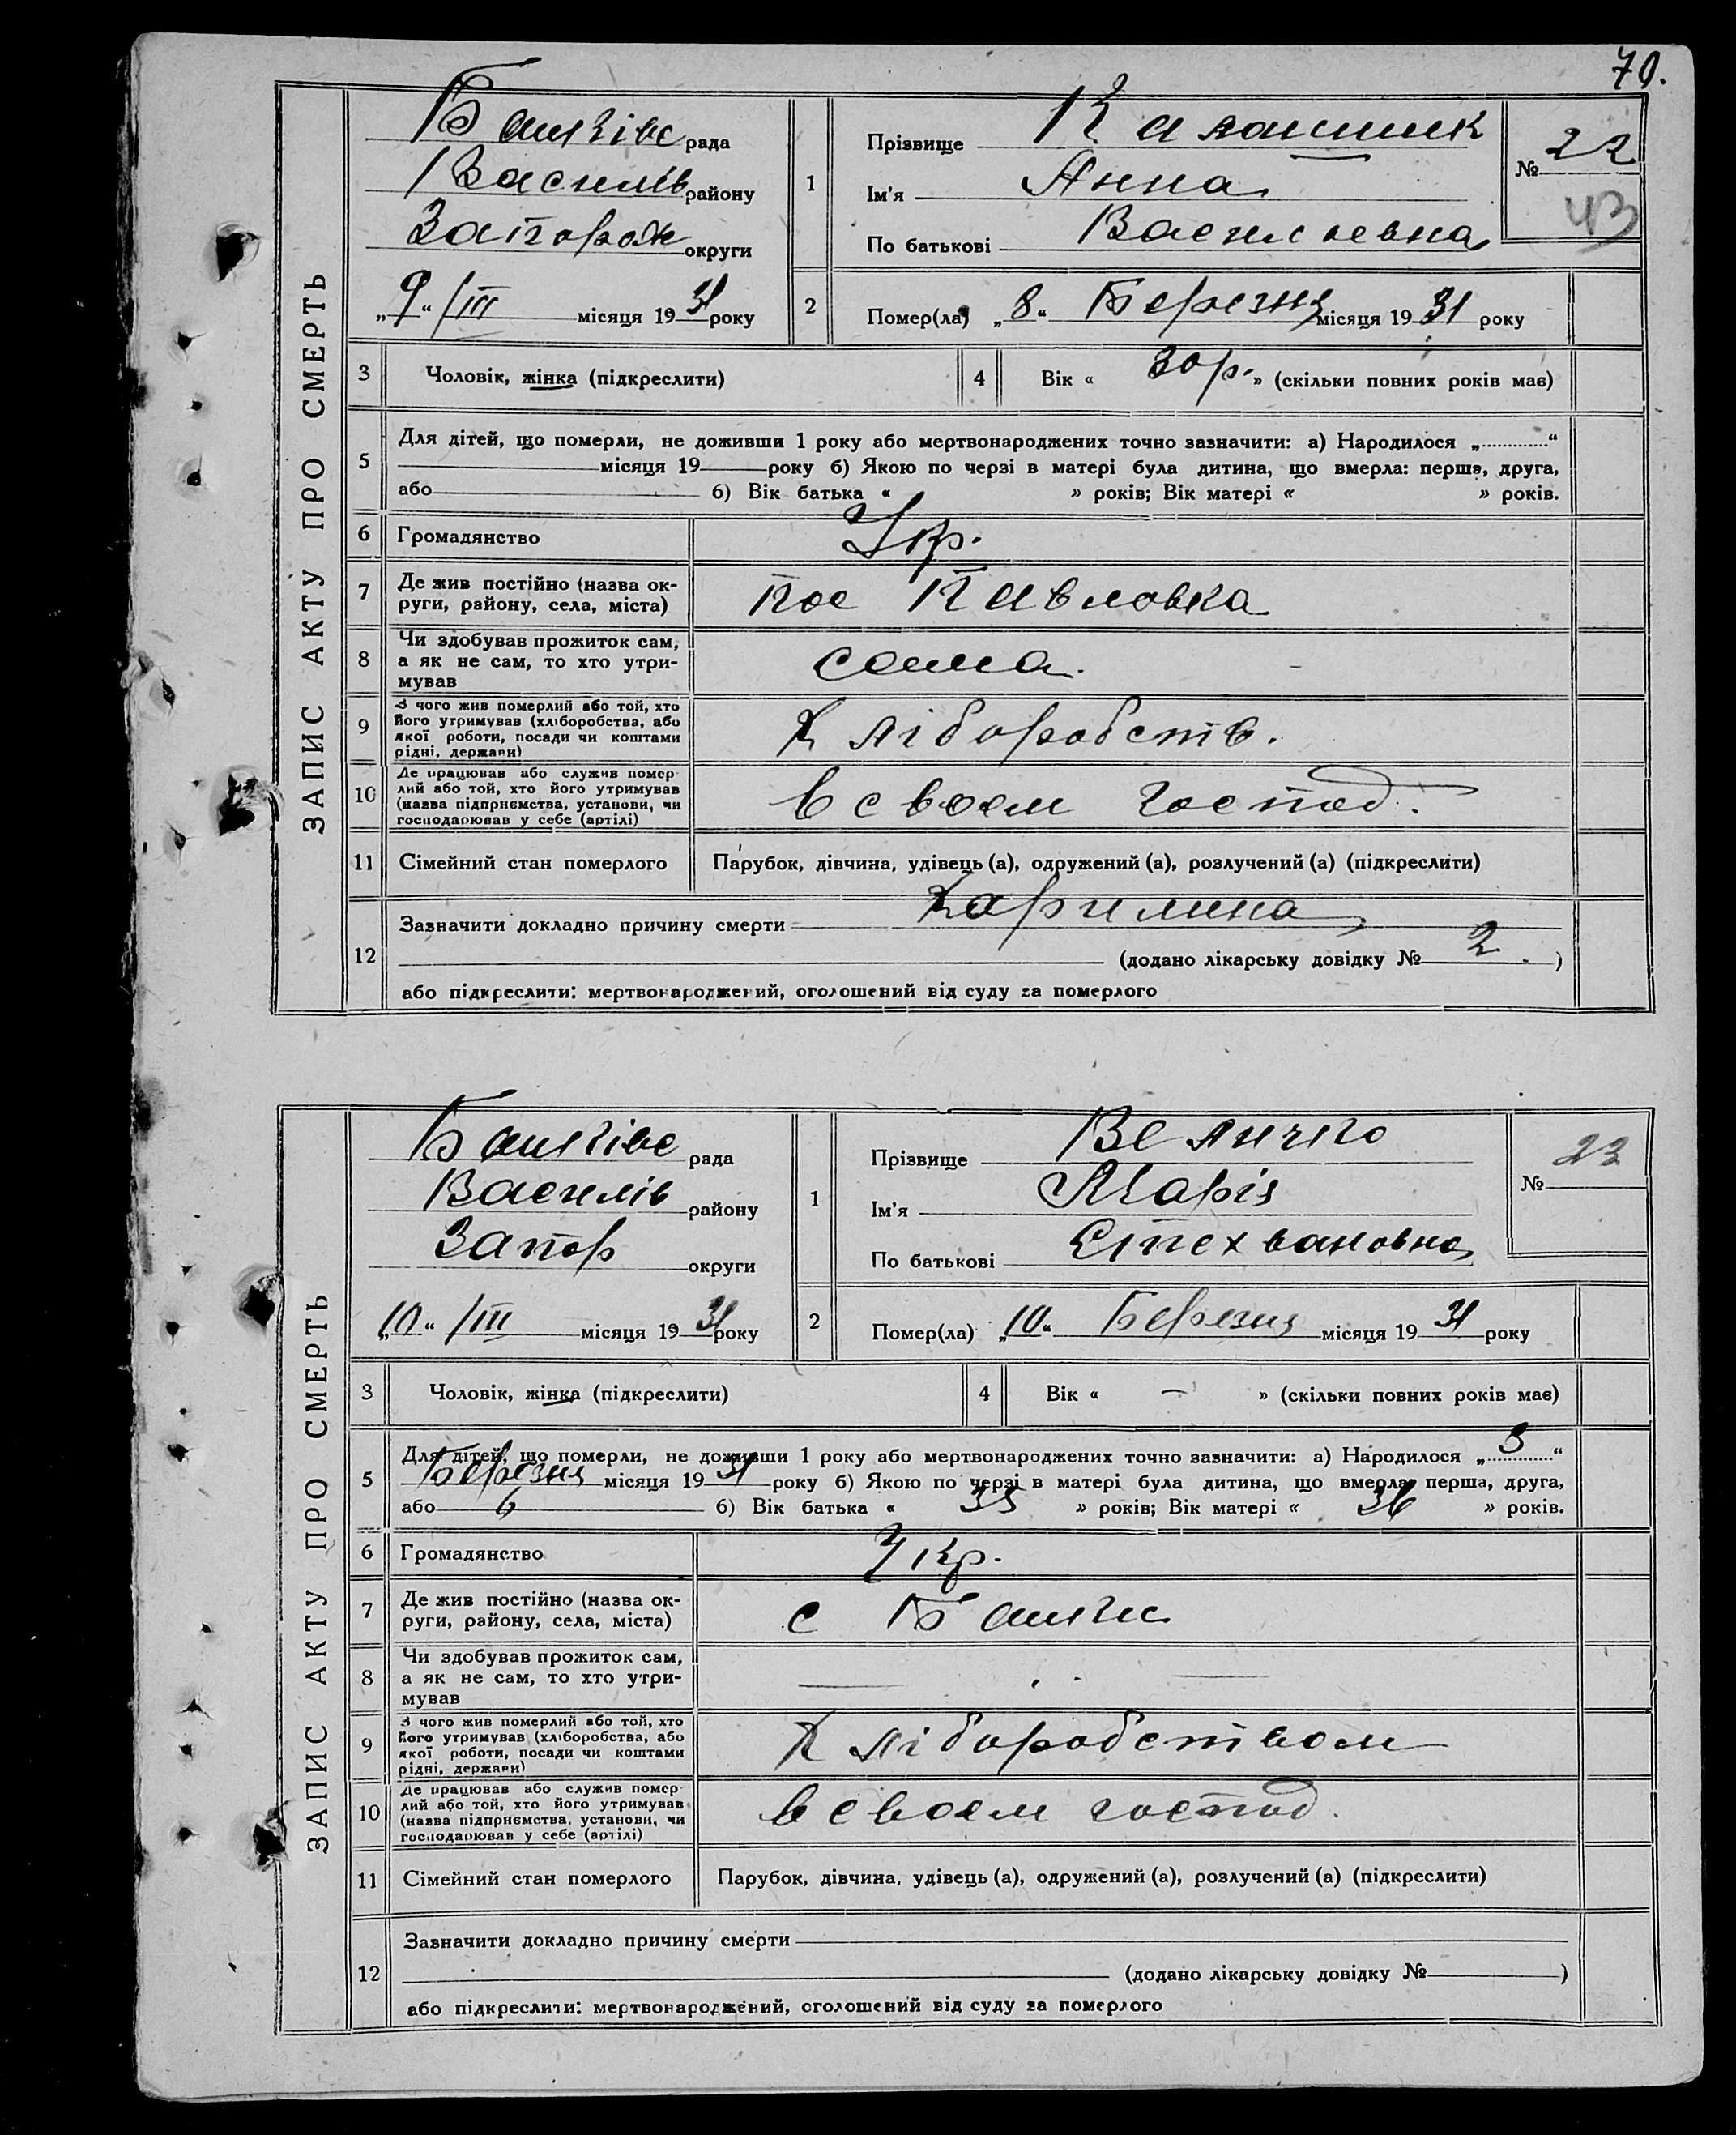 70.
ЗАПИС АКТУ ПРО СМЕРТЬ
Балківс рада
Василів району
Запорож округи
„9“ /III місяця 1931 року
1 Прізвище Калашник
Ім'я Анна
По батькові Васильевна
№ 22
43
2 Помер(ла) „8“ Березня місяця 1931 року
3 Чоловік, жінка (підкреслити)
4 Вік « 30 р. » (скільки повних років має)
5 Для дітей, що померли, не доживши 1 року або мертвонароджених точно зазначити: а) Народилося „ “
місяця 19 року б) Якою по черзі в матері була дитина, що вмерла: перша, друга,
або б) Вік батька « » років; Вік матері « » років.
6 Громадянство Укр.
7 Де жив постійно (назва округи, району, села, міста) пос Павловка
8 Чи здобував прожиток сам, а як не сам, то хто утримував сама.
9 З чого жив померлий або той, хто його утримував (хліборобства, або якої роботи, посади чи коштами рідні, держави) Хліборобств.
10 Де працював або служив померлий або той, хто його утримував (назва підприємства, установи, чи господарював у себе (артілі) в своем господ.
11 Сімейний стан померлого Парубок, дівчина, удівець (а), одружений (а), розлучений (а) (підкреслити)
12 Зазначити докладно причину смерти
(додано лікарську довідку № 2.)
або підкреслити: мертвонароджений, оголошений від суду за померлого
ЗАПИС АКТУ ПРО СМЕРТЬ
Балківс рада
Василів району
Запор округи
„10“ /III місяця 1931 року
1 Прізвище Величко
Ім'я Марія
По батькові Стехвановна
№ 23
2 Помер(ла) „10“ Березня місяця 1931 року
3 Чоловік, жінка (підкреслити)
4 Вік « — » (скільки повних років має)
5 Для дітей, що померли, не доживши 1 року або мертвонароджених точно зазначити: а) Народилося „3“
Березня місяця 1931 року б) Якою по черзі в матері була дитина, що вмерла: перша, друга,
або 6 б) Вік батька « 35 » років; Вік матері « 36 » років.
6 Громадянство Укр.
7 Де жив постійно (назва округи, району, села, міста) с Балки
8 Чи здобував прожиток сам, а як не сам, то хто утримував
9 З чого жив померлий або той, хто його утримував (хліборобства, або якої роботи, посади чи коштами рідні, держави) Хліборобством
10 Де працював або служив померлий або той, хто його утримував (назва підприємства, установи, чи господарював у себе (артілі) в своем господ.
11 Сімейний стан померлого Парубок, дівчина, удівець (а), одружений (а), розлучений (а) (підкреслити)
12 Зазначити докладно причину смерти
(додано лікарську довідку № )
або підкреслити: мертвонароджений, оголошений від суду за померлого